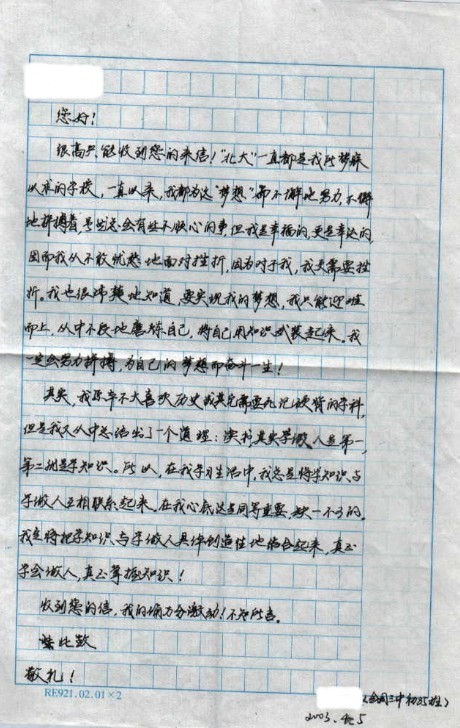 您好！
很高兴能收到您的来信！"北大"一直都是我所梦寐
以求的学校，一直以来，我都为这"梦想"而不懈地努力，不懈
地拼搏着，是说总会有些不顺心的事，但我是幸福的，更是幸运的，
因而我从不敢忧愁地面对挫折，因为对于我，我只需要挫
折。我也很清楚地知道，要实现我的梦想，我只能迎难
而上，从中不段地磨练自己，将自己用知识武装起来。我
一定会努力拼搏，为自己的梦想而奋斗一生！
其实，我原本不太喜欢历史或其它需要死记硬背的学科，
但是我又从中总结出了一个道理：读书其实学做人是第一，
第二才是学知识。所以，在我学习生活中，我总是将学知识与
学做人互相联系起来，在我心底这是同等重要，缺一不可的。
我定将把学知识与学做人具体创造性地结合起来，真正
学会做人，真正掌握知识！
收到您的信，我的确十分激动！不知所言。
特此致
敬礼！
RE921.02.01×2
三中初
2003.